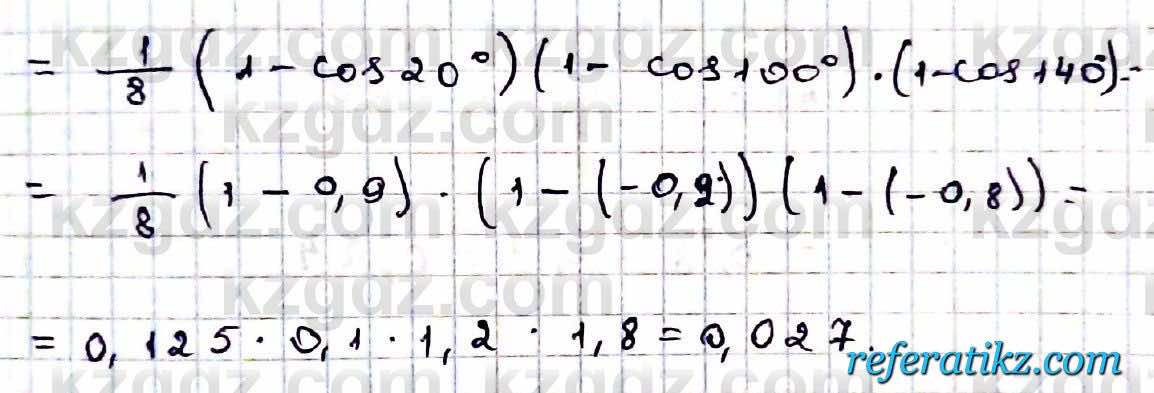 = 1/8 (1 - cos 20°)(1 - cos 100°) · (1 - cos 140°) =
= 1/8 (1 - 0,9) · (1 - (-0,2))(1 - (-0,8)) =
= 0,125 · 0,1 · 1,2 · 1,8 = 0,027.
referatikz.com
kzgdz.com